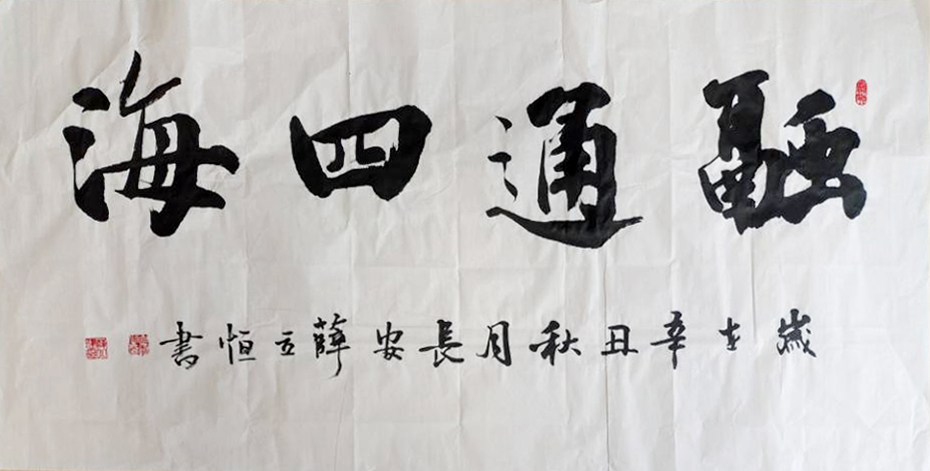 融通四海
歲在辛丑秋月長安薛立恒書